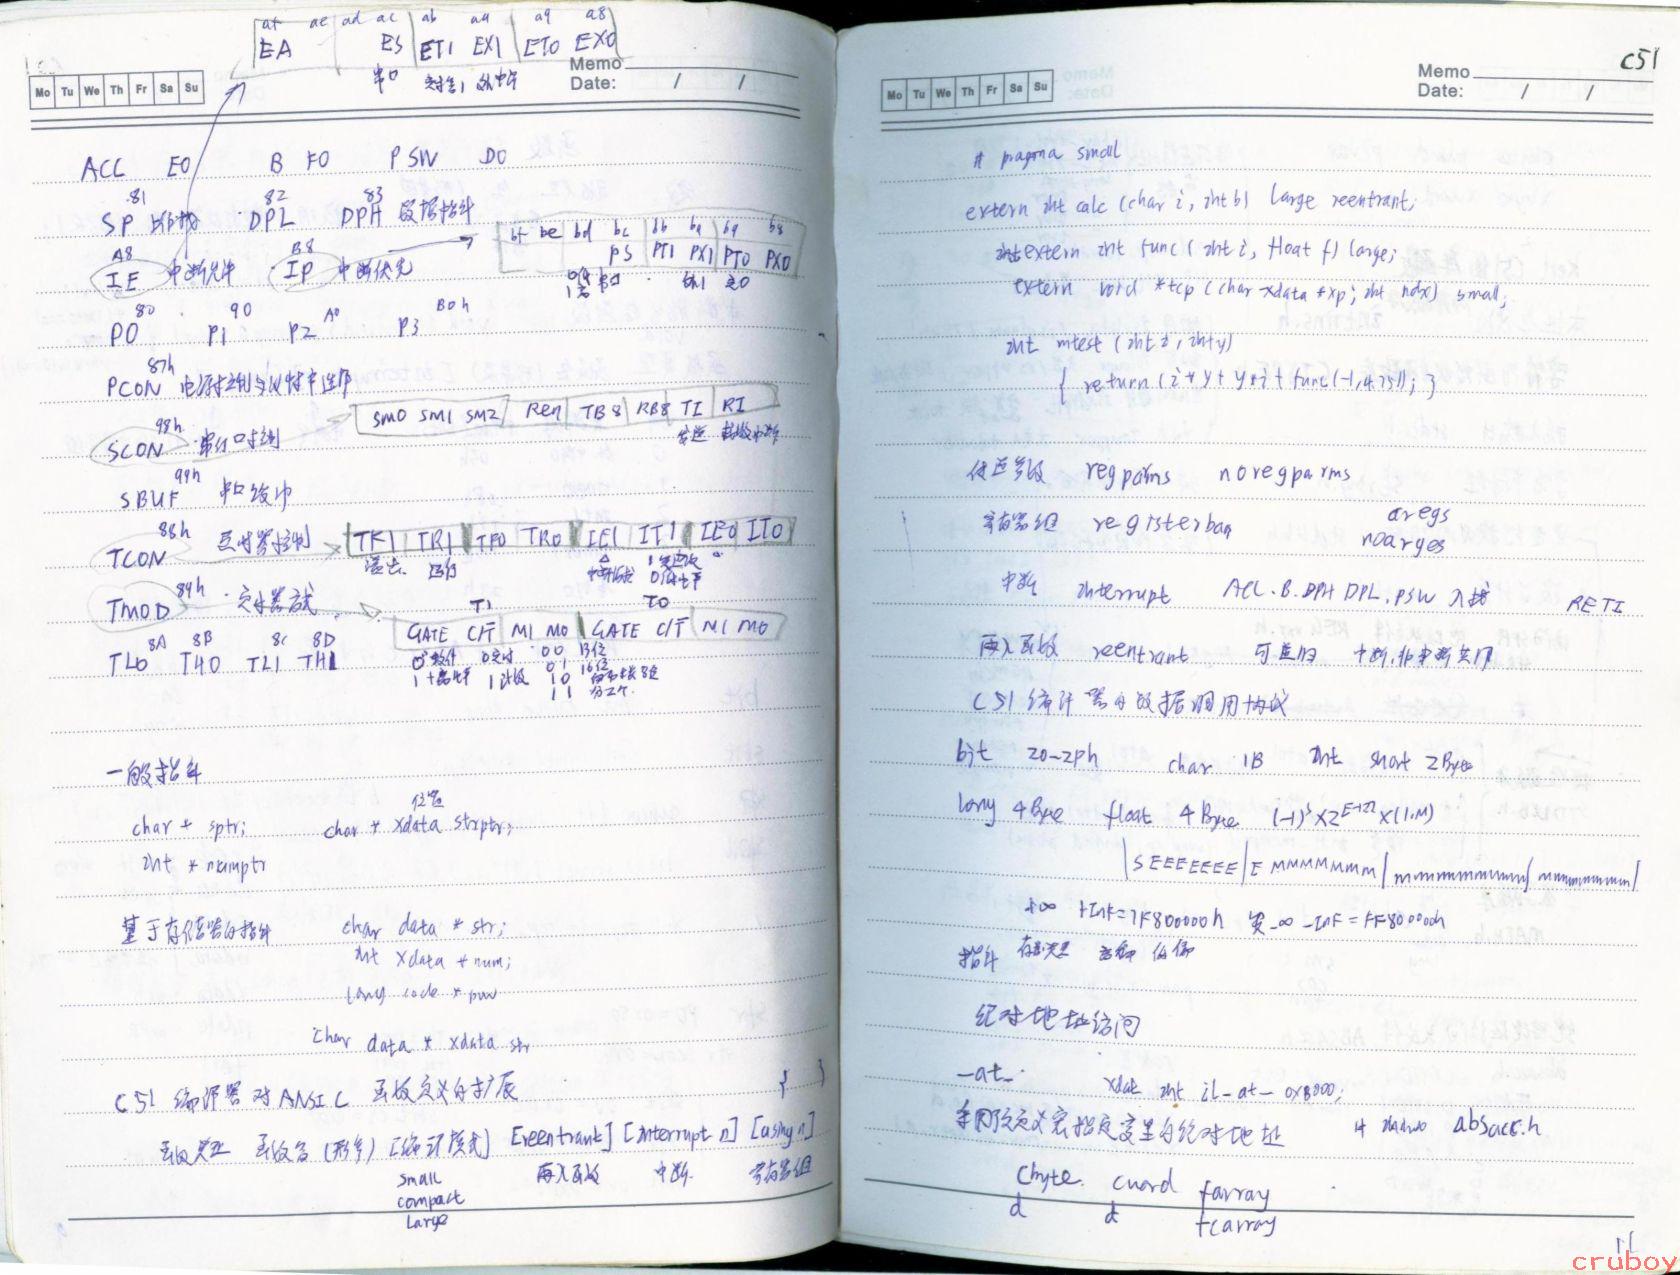 af ae ad ac ab aa a9 a8
EA ES ET1 EX1 ET0 EX0
串口 定时1 外中断
Memo
Date: / /
Mo Tu We Th Fr Sa Su
ACC E0 B F0 PSW D0
81 82 83
SP 堆栈 DPL DPH 数据指针
bf be bd bc bb ba b9 b8
PS PT1 PX1 PT0 PX0
A8 B8
IE 中断允许 IP 中断优先
串口 外1 定0
80 90 A0 B0h
P0 P1 P2 P3
87h
PCON 电源控制与波特率选择
SM0 SM1 SM2 Ren TB8 RB8 TI RI
发送 接收中断
98h
SCON 串行口控制
99h
SBUF 串口缓冲
88h
TCON 定时器控制
TF1 TR1 TF0 TR0 IE1 IT1 IE0 IT0
溢出 运行
89h
TMOD 定时器方式
T1 T0
GATE C/T M1 M0 GATE C/T M1 M0
8A 8B 8C 8D
TL0 TH0 TL1 TH1
0 软件 0 定时 00 13位
1 1 计数 01 16位
10
11
一般指针
位置
char * sptr; char * xdata strptr;
int * numptr
基于存储器的指针 char data * str;
int xdata * num;
long code * pow
char data * xdata str
C51 编译器对ANSI C 函数定义的扩展 { }
函数类型 函数名 (形参) [编译模式] [reentrant] [interrupt n] [using n]
small 再入函数 中断 寄存器组
compact
large
C51
Memo
Date: / /
Mo Tu We Th Fr Sa Su
# pragma small
extern int calc (char i, int b) large reentrant;
extern int func (int i, float f) large;
extern void *tcp (char xdata *xp, int ndx) small;
int mtest (int i, int y)
{ return (i * y + y * i + func(-1, 4.75)); }
传递参数 regparms noregparms
寄存器组 registerban aregs
noarges
中断 interrupt ACC. B. DPH DPL. PSW 入栈 RETI
再入函数 reentrant 可重归 中断,非中断共用
C51 编译器的数据调用协议
bit 20-2Fh char 1B int short 2Byte
long 4Byte float 4Byte (-1)^S X2^E-127 X(1.M)
|SEEEEEEE|E MMMMMMM|mmmmmmmm|mmmmmmmm|
+∞ +InF=7F800000h -∞ -InF=FF800000h
指针 存器类型 高偏 低偏
绝对地址访问
_at_ xdat int i1_at_ 0x8000;
采用预定义宏指定变量的绝对地址 absacc.h
cbyte. cword farray
d d fcarray
11
cruboy